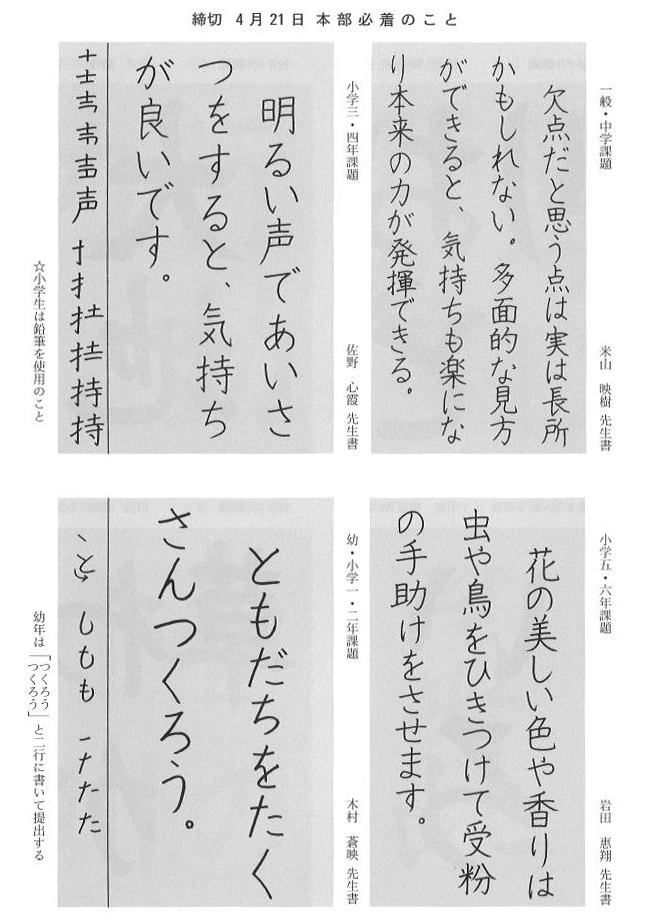 締切 4月21日 本部必着のこと
一般・中学課題 米山 映樹 先生書
欠点だと思う点は実は長所
かもしれない。多面的な見方
ができると、気持ちも楽にな
り本来の力が発揮できる。
小学三・四年課題 佐野 心霞 先生書
明るい声であいさ
つをすると、気持ち
が良いです。
十士吉吉声声 十扌扗挂持持
☆小学生は鉛筆を使用のこと
小学五・六年課題 岩田 恵翔 先生書
花の美しい色や香りは
虫や鳥をひきつけて受粉
の手助けをさせます。
幼・小学一・二年課題 木村 蒼映 先生書
ともだちをたく
さんつくろう。
丶と しもも 一ナたた
幼年は「つくろう
つくろう」と二行に書いて提出する